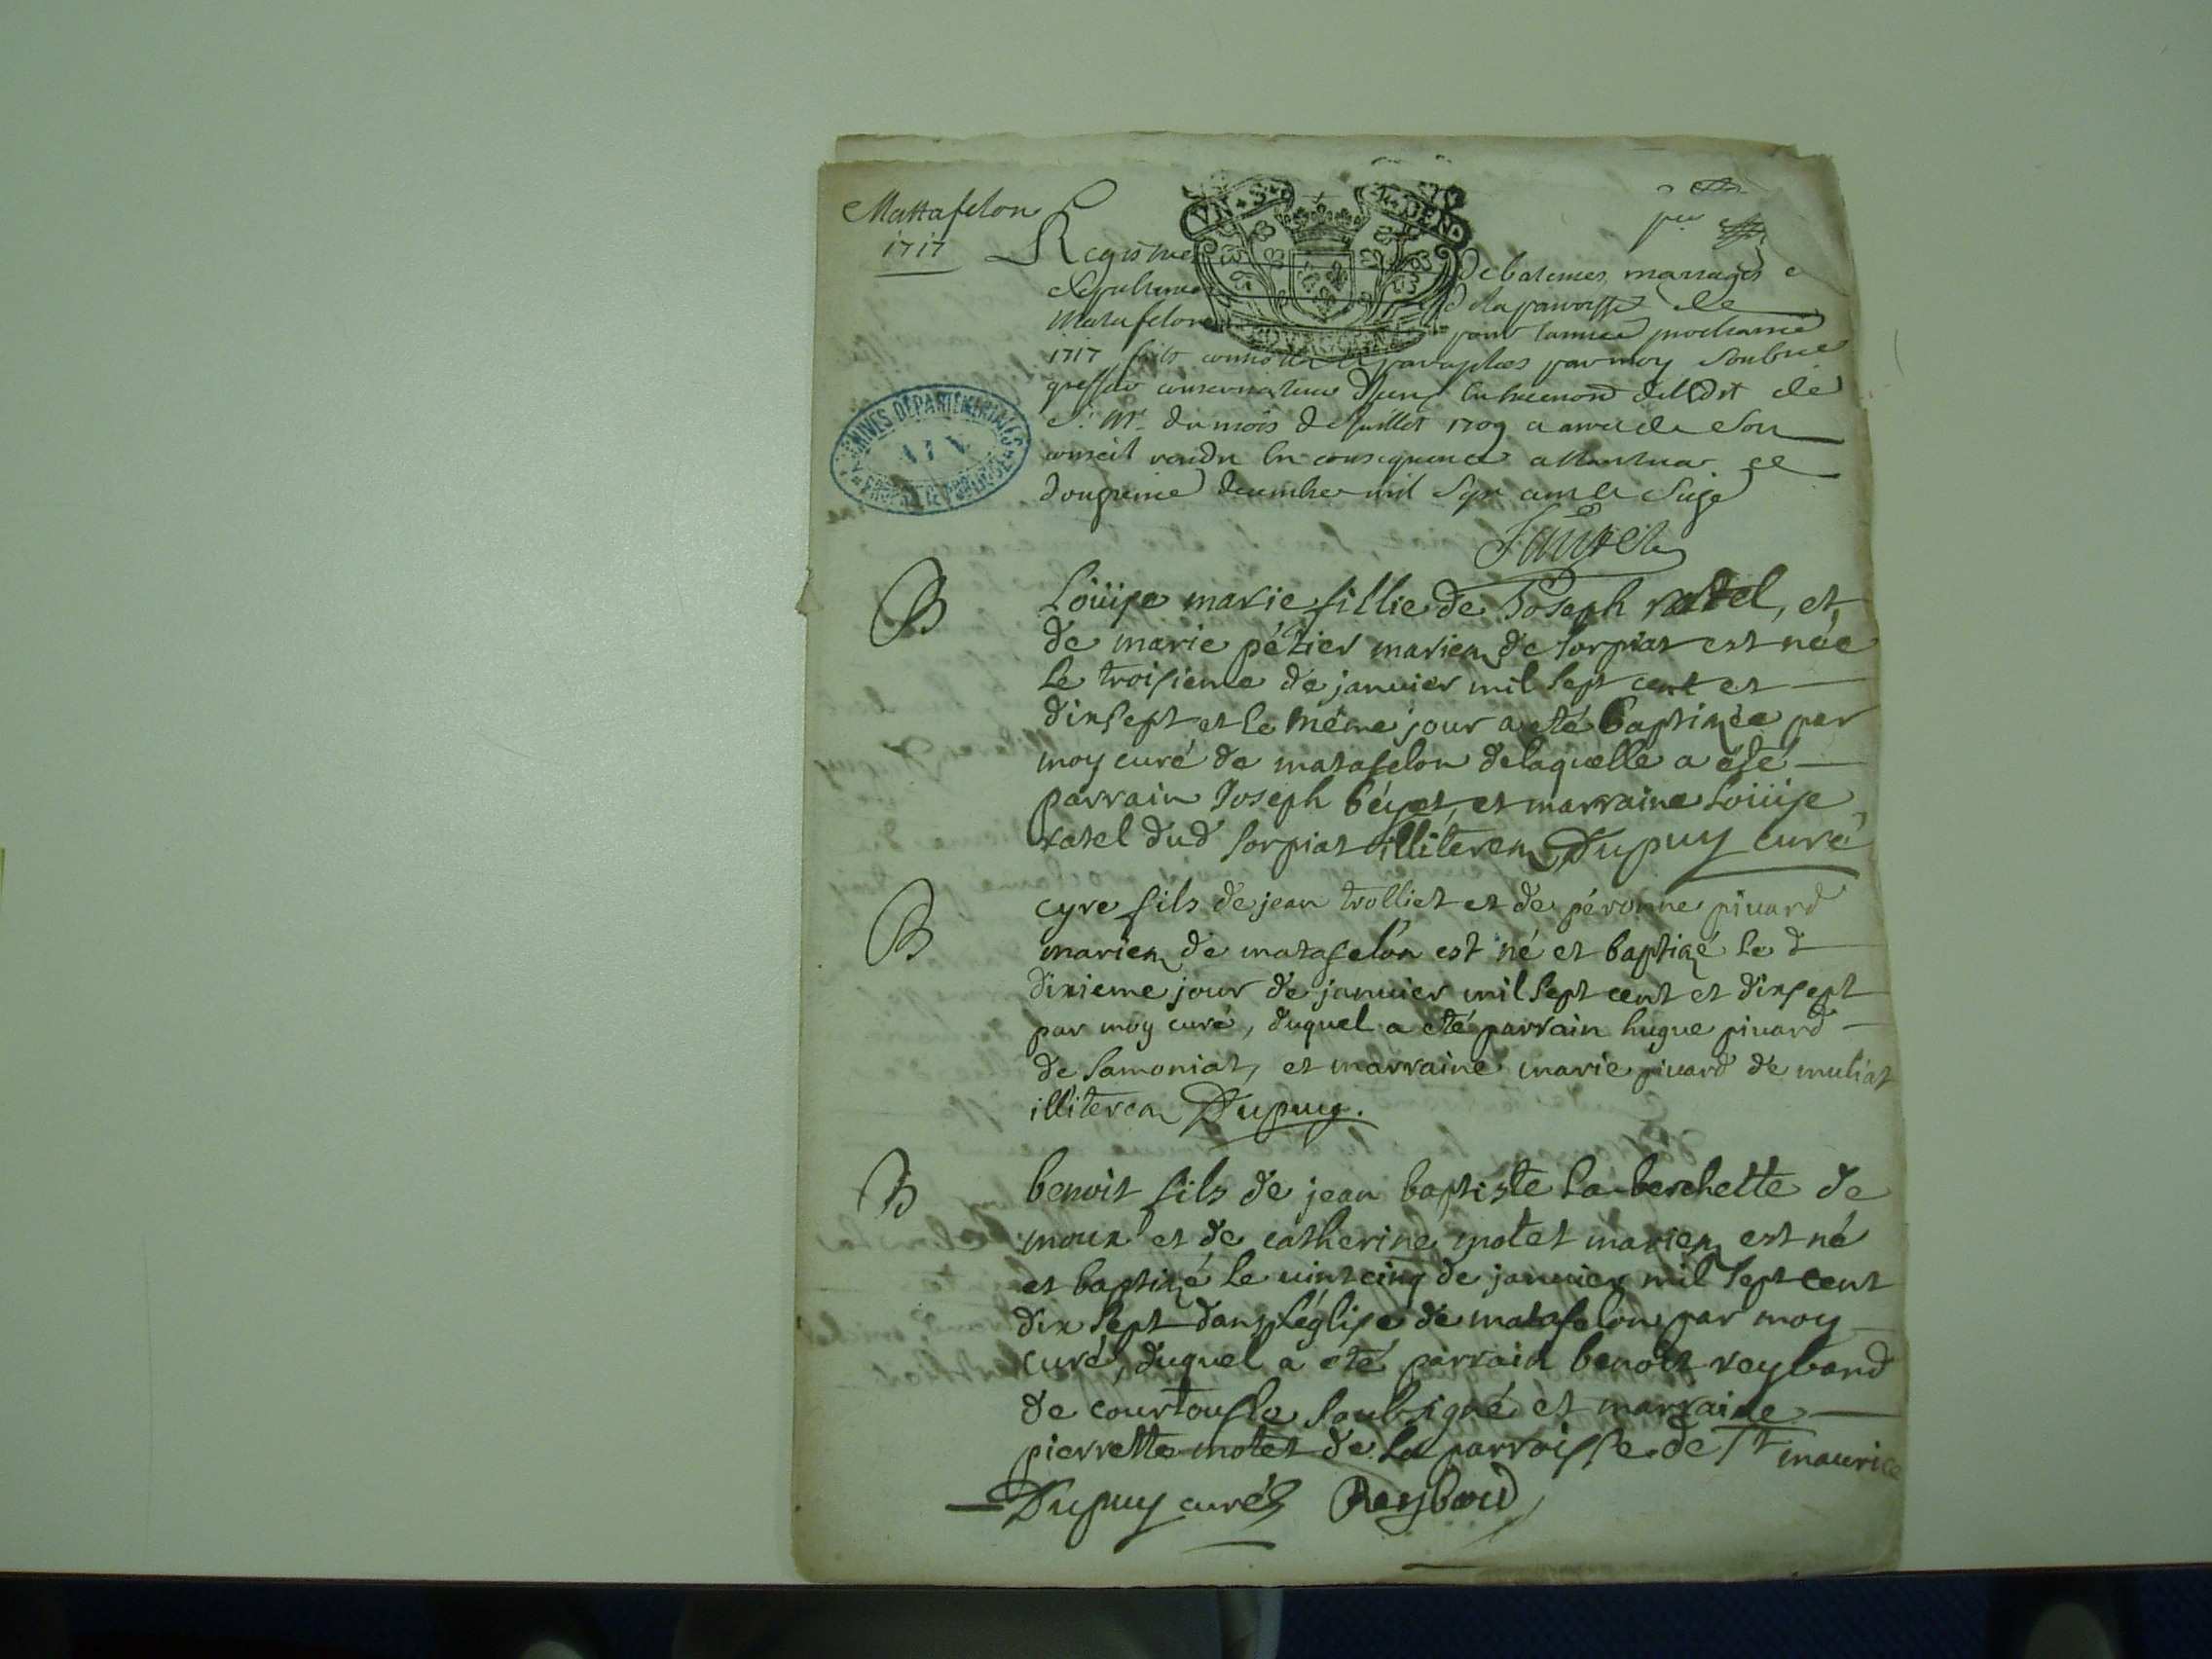 Mattafelon
1717
VN S. 4. DEND
Registre de batemes, mariages e
sepultures de la parroisse de
Matafelon pour lannee prochaine
1717 paraphes par moy Soubné
greffier conservateur de
S. M. du mois de Juillet 1709 de Son
conseil rendu en consequence a Nantua ce
decembre mil Sept cent Seize
ARCHIVES DEPARTEMENTALES
AIN
B
Loüise marie fillie de Joseph ratel, et
de marie pétier mariez de Corpiat est née
le troisieme de janvier mil sept cent et
dixsept et le même jour a eté baptizée par
moy curé de matafelon delaquelle a eté
parrain Joseph et marraine Loüise
ratel dud Corpiat illiterez Dupuy curé
B
cyre fils de jean trolliet et de péronne pivard
mariez de matafelon est né et baptizé le d
dixieme jour de janvier mil sept cent et dixsept
par moy curé, duquel a eté parrain hugue pivard
de Samoniat, et marraine marie pivard de muliat
illiterez Dupuy.
B
benoit fils de jean baptiste la berchette de
moux et de catherine motet mariez est né
et baptizé le vint cinq de janvier mil sept cent
dix sept dans l'église de matafelon par moy
curé, duquel a eté parrain benoit reybaud
de courtoufle soubsigné et marraine
pierrette motet de la parroisse de St maurice
Dupuy curé Reybaud